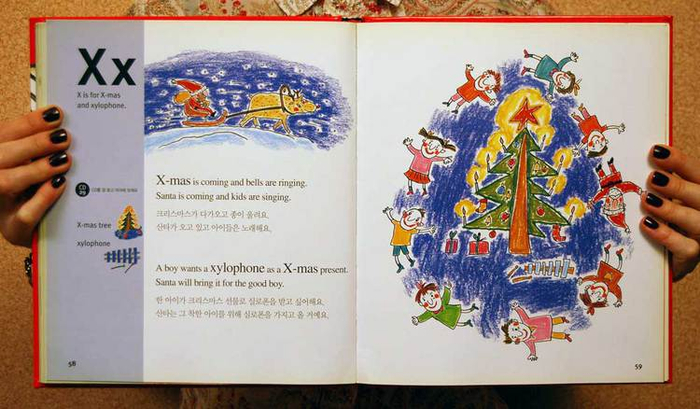 Xx
X is for X-mas
and xylophone.
CD
29
X-mas tree
xylophone
58
X-mas is coming and bells are ringing.
Santa is coming and kids are singing.
크리스마스가 다가오고 종이 울려요.
산타가 오고 있고 아이들은 노래해요.
A boy wants a xylophone as a X-mas present.
Santa will bring it for the good boy.
한 아이가 크리스마스 선물로 실로폰을 받고 싶어해요.
산타는 그 착한 아이를 위해 실로폰을 가지고 올 거예요.
59